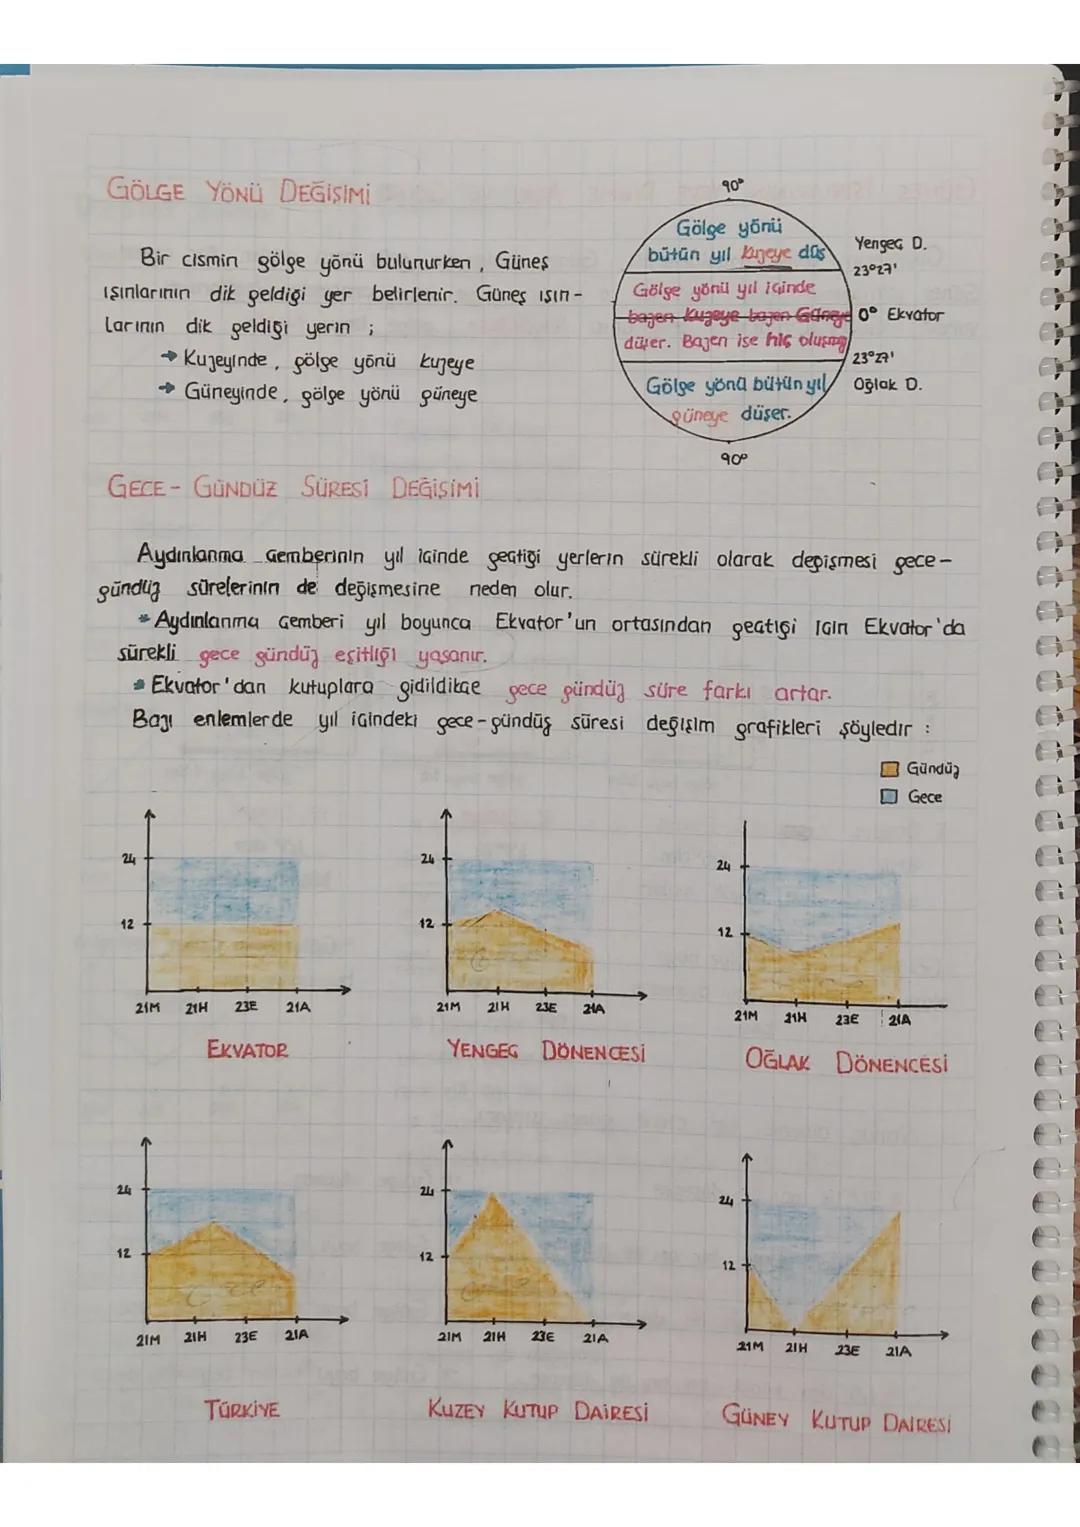 GÖLGE YÖNÜ DEĞİŞİMİ
Bir cismin gölge yönü bulunurken, Güneş
ışınlarının dik geldiği yer belirlenir. Güneş ışın-
larının dik geldiği yerin ;
→ Kuzeyinde, gölge yönü kuzeye
→ Güneyinde, gölge yönü güneye
90°
Gölge yönü
bütün yıl kuzeye düş
Yengeç D.
23°27'
Gölge yönü yıl içinde
bazen kuzeye bazen Güneye
0° Ekvator
düşer. Bazen ise hiç oluşmaz
23°27'
Gölge yönü bütün yıl
Oğlak D.
güneye düşer.
90°
GECE - GÜNDÜZ SÜRESİ DEĞİŞİMİ
Aydınlanma çemberinin yıl içinde geçtiği yerlerin sürekli olarak değişmesi gece-
gündüz sürelerinin de değişmesine neden olur.
* Aydınlanma çemberi yıl boyunca Ekvator'un ortasından geçtiği için Ekvator'da
sürekli gece gündüz eşitliği yaşanır.
* Ekvator'dan kutuplara gidildikçe gece gündüz süre farkı artar.
Bazı enlemlerde yıl içindeki gece-gündüz süresi değişim grafikleri şöyledir :
Gündüz
Gece
24
12
21M 21H 23E 21A
EKVATOR
24
12
21M 21H 23E 21A
YENGEÇ DÖNENCESİ
24
12
21M 21H 23E 21A
OĞLAK DÖNENCESİ
24
12
21M 21H 23E 21A
TÜRKİYE
24
12
21M 21H 23E 21A
KUZEY KUTUP DAİRESİ
24
12
21M 21H 23E 21A
GÜNEY KUTUP DAİRESİ